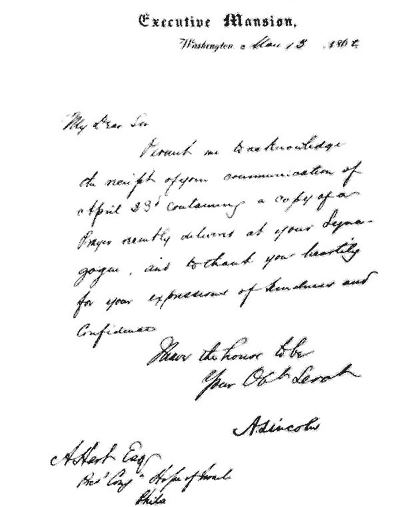 Executive Mansion,
Washington, May 13, 1862
My Dear Sir
Permit me to acknowledge
the receipt of your communication of
April 23d containing a copy of a
Prayer recently delivered at your Syna-
gogue, and to thank you heartily
for your expressions of kindness and
Confidence
I have the honor to be
Your Obt. Servt.
A. Lincoln
A Hart Esq
Prest Congn Hope of Israel
Phila